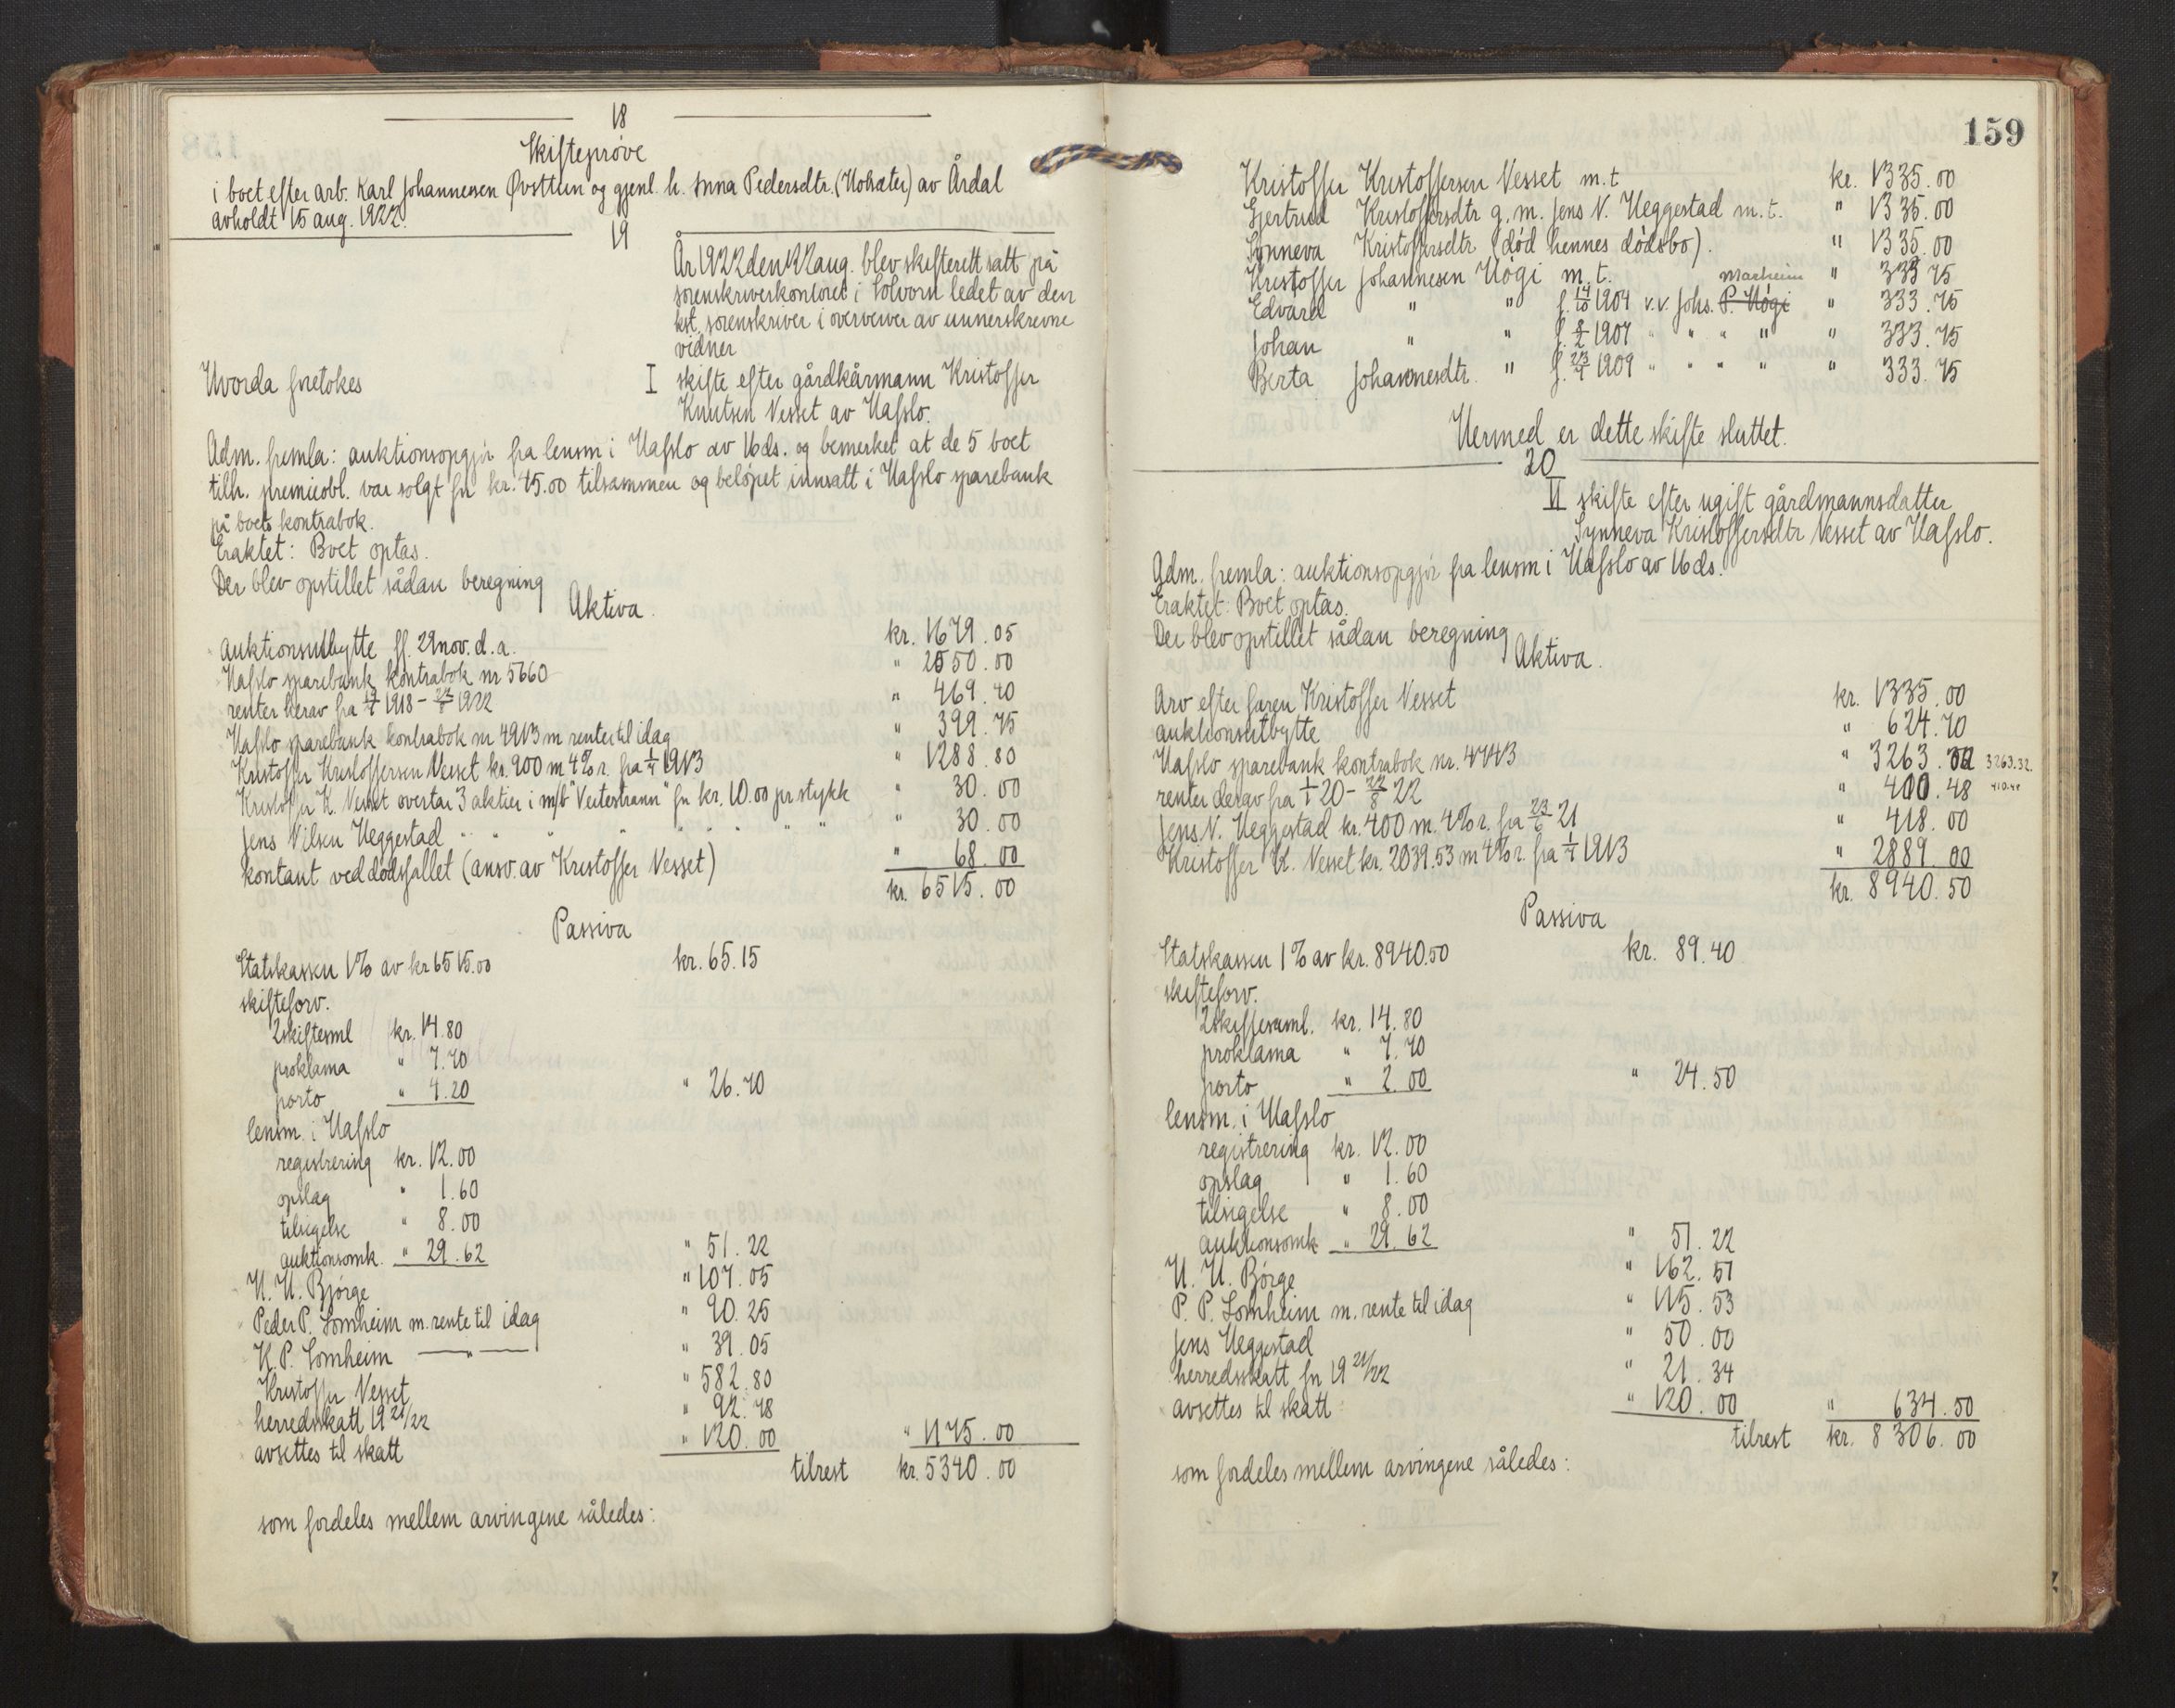 18
Skifteprøve
i boet efter arb. Karl Johannessen Øvsttun og gjenl. h. Anna Pedersdtr. (Holsæter) av Årdal
avholdt 15 aug. 1922.
19
År 1922 den 22 aug. blev skifterett satt på
sorenskriverkontoret i Solvorn ledet av den
kst. sorenskriver i overvær av unnerskrevne
vidner
Hvorda foretokes
I skifte efter gårdkårmann Kristoffer
Knutsen Nesset av Hafslo.
Adm. fremla: auktionsopgjør fra lensm i Hafslo av 16 ds. og bemerket at de 5 boet
tilh. premieobl. var solgt for kr. 75.00 tilsammen og beløpet innsatt i Hafslo sparebank
på boets kontrabok.
Eraktet: Boet optas.
Der blev opstillet sådan beregning
Aktiva.
auktionsutbytte ff. 29 nov. d. a. kr. 1679.05
Hafslo sparebank kontrabok nr 5660 " 2550.00
renter herav fra 1918 – 22/8 1922 " 469.40
Hafslo sparebank kontrabok nr 4913 m renter til idag " 399.75
Kristoffer Kristoffersen Nesset kr. 900 m 4% r. fra 1/7 1913 " 1288.80
Kristoffer K. Nesset overtar 3 aktier i m/b "Veitestrann" for kr. 10.00 pr stykk " 30.00
Jens Nilsen Heggestad " " " " " " " " " 30.00
kontant ved dødsfallet (ansv. av Kristoffer Nesset) " 68.00
kr. 6515.00
Passiva
Statskassen 1% av kr 6515.00 kr. 65.15
skifteforv.
2 skiftesml kr. 14.80
proklama " 7.70
porto " 4.20 " 26.70
lensm. i Hafslo
registrering kr. 12.00
opslag " 1.60
tilsigelse " 8.00
auktionsomk. " 29.62 " 51.22
H. H. Bjørge " 107.05
Peder P. Lomheim m. rente til idag " 90.25
K. P. Lomheim — " — " 39.05
Kristoffer Nesset " 582.80
herredsskatt 19 21/22 " 92.78
avsettes til skatt " 120.00 " 1175.00
tilrest kr. 5340.00
som fordeles mellem arvingene således:
159
Kristoffer Kristoffersen Nesset m. t. kr. 1335.00
Gjertrud Kristoffersdtr g. m. Jens N. Heggestad m. t. " 1335.00
Synneva Kristoffersdtr (død hennes dødsbo). " 1335.00
Kristoffer Johannesen Høgi m. t. " 333.75
Marheim
Edvard " " f. 14/10 1904 v. v. Johs. P. Høgi " 333.75
Johan " " f. 1907 " " " " " 333.75
Berta Johannesdtr. " f. 1909 " " " " " 333.75
Hermed er dette skifte sluttet.
20
II skifte efter ugift gårdmannsdatter
Synneva Kristoffersdtr Nesset av Hafslo.
Adm. fremla: auktionsopgjør fra lensm i Hafslo av 16 ds.
Eraktet: Boet optas.
Der blev opstillet sådan beregning
Aktiva.
Arv efter faren Kristoffer Nesset kr. 1335.00
auktionsutbytte " 624.70
Hafslo sparebank kontrabok nr. 4743 " 3263.32 3263.32.
renter derav fra 1/1 20 – 22/8 22 " 410.48 410.48
Jens N. Heggestad kr. 400 m. 4% r. fra 23/6 21 " 418.00
Kristoffer K. Nesset kr. 2039.53 m 4% r. fra 1/7 1913 " 2889.00
kr. 8940.50
Passiva
Statskassen 1% av kr. 8940.50 kr. 89.40
skifteforv.
2 skiftesaml. kr. 14.80
proklama " 7.70
porto " 2.00 " 24.50
lensm. i Hafslo
registrering kr. 12.00
opslag " 1.60
tilsigelse " 8.00
auktionsomk " 29.62 " 51.22
H. H. Bjørge " 162.51
P. P. Lomheim m. rente til idag " 115.53
Jens Heggestad " 50.00
herredsskatt for 19 21/22 " 21.34
avsettes til skatt " 120.00 " 634.50
tilrest kr. 8306.00
som fordeles mellem arvingene således: